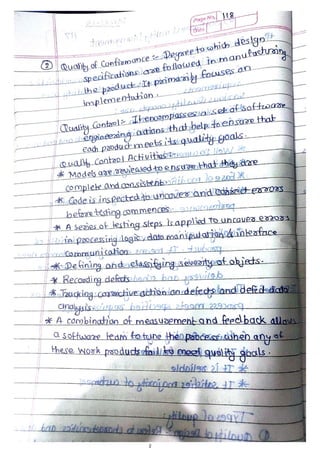 Page No. 118
Date
② Quality of Conformance :- Degree to which design
specifications are followed in manufacturing
the product. It primarily focuses on
Implementation.
Quality Control :- It encompasses a set of Software
engineering actions that help to ensure that
each product meets its quality goals.
Quality Control Activities :-
* Models are reviewed to ensure that they are
complete and consistent.
* Code is inspected to uncover and correct errors
before testing commences
* A series of testing steps is applied to uncover errors
in processing logic, data manipulation & interface
communication
* Defining and classifying severity of objects.
* Recording defects
* Tracking corrective action on defects and defect data
analysis
* A combination of measurement and feedback allows
a software team to tune the process when any of
these work products fail to meet quality goals.